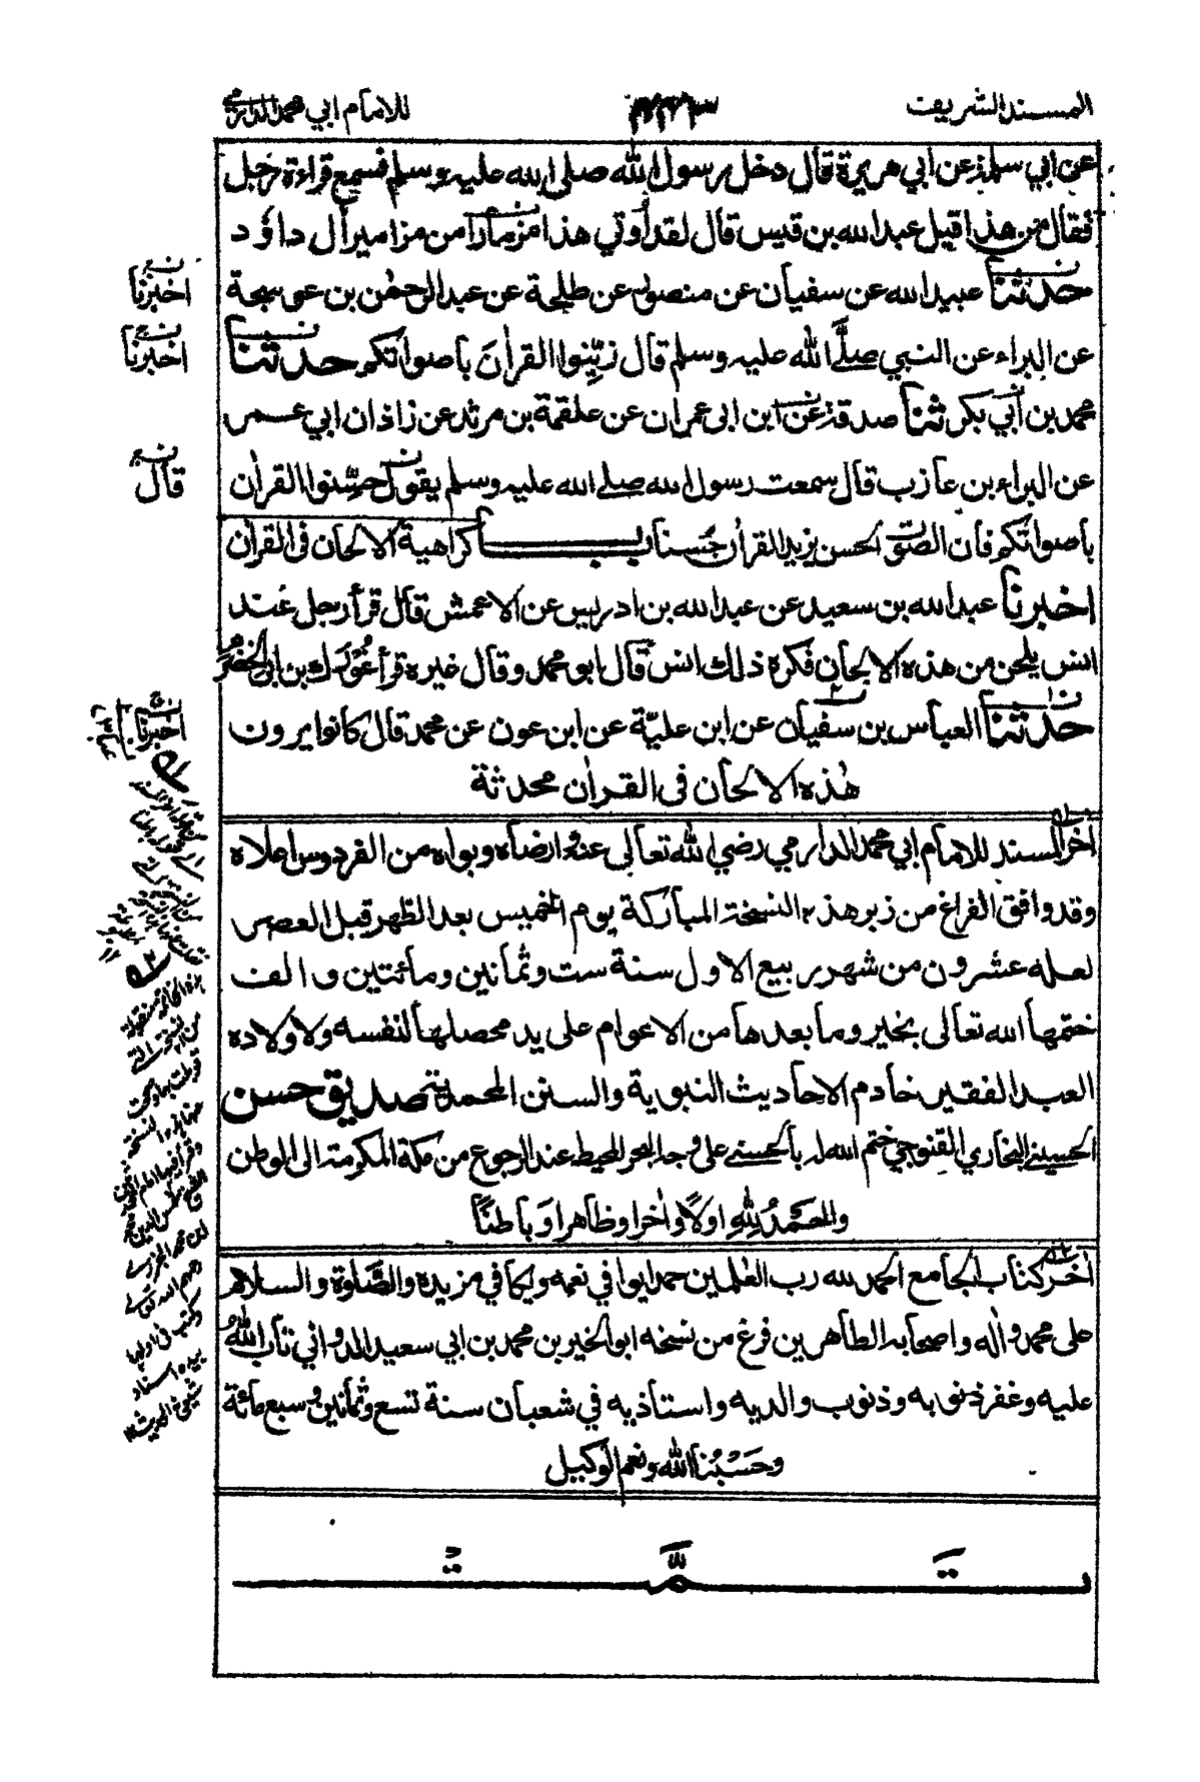 المسند الشريف
للامام ابي محمد الدارمي
عن ابي سلمة عن ابي هريرة قال دخل رسول الله صلى الله عليه وسلم فسمع قراءة رجل
فقال من هذا قيل عبد الله بن قيس قال لقد أوتي هذا مزمارا من مزامير أل داؤد
حدثنا عبيد الله عن سفيان عن منصور عن طلحة عن عبد الرحمٰن بن عوسجة
اخبرنا
عن البراء عن النبي صلَّى الله عليه وسلم قال زيِّنوا القرأنَ باصواتكم حدثنا
اخبرنا
محمد بن أبي بكر ثنا صدقة عن ابن ابى عمران عن علقمة بن مرثد عن زاذان ابي عمر
عن البراء بن عازب قال سمعت رسول الله صلى الله عليه وسلم يقول حسِّنوا القرأن
قال
باصواتكم فان الصوت الحسن يزيد القرأن حُسنا باب كراهية الالحان فى القرأن
اخبرنا عبد الله بن سعيد عن عبد الله بن ادريس عن الاعمش قال قرأ رجل عند
انس يلحن من هذه الالحان فكره ذلك انس قال ابو محمد وقال غيره قرأ غورك بن ابى الخضرم
حدثنا العباس بن سفيان عن ابن عليّة عن ابن عون عن محمد قال كانوا يرون
اخبرنا
هٰذه الالحان فى القرأن محدثة
أخر المسند للامام ابي محمد الدارمي رضي الله تعالى عنه وارضاه وبواه من الفردوس اعلاه
وقد وافق الفراغ من زبر هذه النسخة المباركة يوم الخميس بعد الظهر قبل العصر
لعله عشرون من شهر ربيع الاول سنة ست وثمانين ومائتين والف
ختمها الله تعالى بخير وما بعدها من الاعوام على يد محصلها لنفسه ولاولاده
العبد الفقير خادم الاحاديث النبوية والسنن المحمدية صديق حسن
الحسيني البخاري القنوجي ختم الله له بالحسنى على وجه البحر المحيط عند الرجوع من مكة المكرمة الى الموطن
والحمدُ لِلّٰهِ اولًا وأخرا وظاهرا وباطنًا
أخر كتاب الجامع الحمد لله رب العٰلمين حمدا يوافي نعمه ويكافي مزيده والصَّلوة والسلام
على محمد وأله واصحابه الطاهرين فرغ من نسخه ابو الخير بن محمد بن ابي سعيد الدواني تاب الله
عليه وغفر ذنوبه وذنوب والديه واستاذيه في شعبان سنة تسع وثمانين وسبع مائة
وحَسْبُنا الله ونعم الوكيل
تمَّت